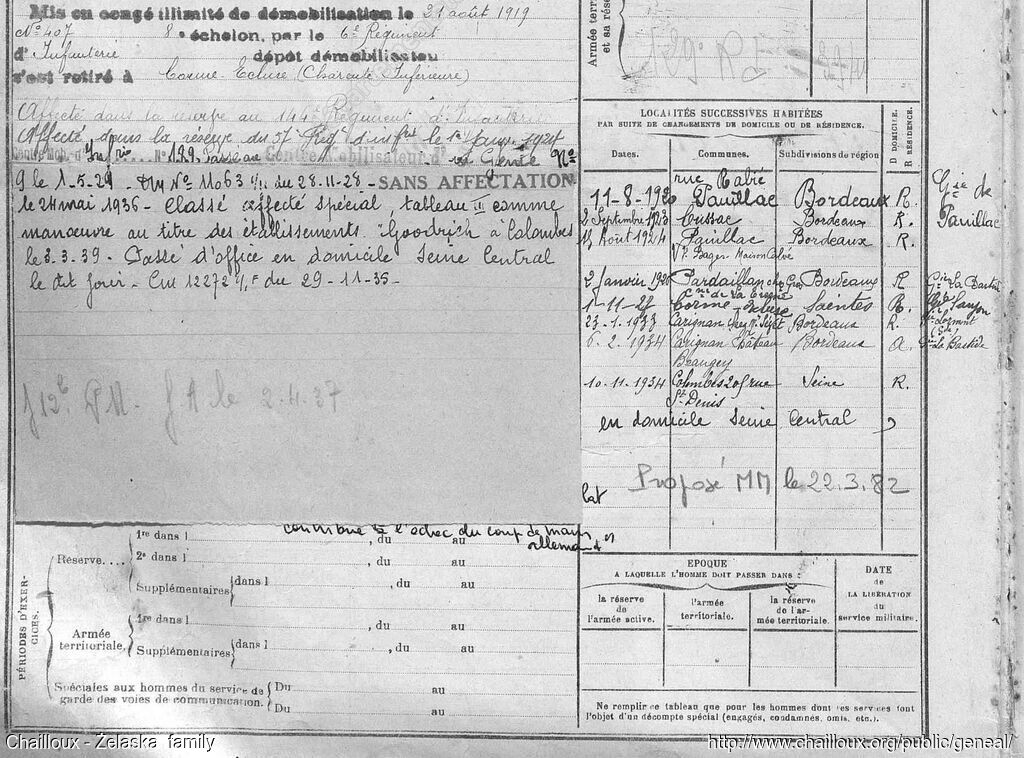 Mis en congé illimité de démobilisation le 21 août 1919
No 407 8e échelon, par le 6e Régiment
d'Infanterie dépôt démobilisateu
s'est retiré à Corme-Ecluse (Charente Inférieure)
Affecté dans la réserve au 144e Régiment d'Infanterie
Affecté dans la réserve du 57e Régt d'infrie le
Centre Mob. d'Infrie No 189. Passé au Centre Mobilisateur d' Génie No
9 le 1-5-29 - DM No 11063 1/11 du 28-11-28 - SANS AFFECTATION
le 24 mai 1936 - Classé affecté spécial, tableau III comme
manœuvre au titre des établissements : Goodrich à Colombes
le 3.3.39. - Passé d'office en domicile Seine Central
le dit jour. - Cm 12272 1/F du 29-11-35 -
J A le 2.4.37
contribué à l'échec du coup de main
allemand
PÉRIODES D'EXERCICES.
Réserve....
1re dans l , du au
2e dans l , du au
Supplémentaires dans l , du au
Armée territoriale.
1re dans l , du au
Supplémentaires dans l , du au
Spéciales aux hommes du service de garde des voies de communication.
Du au
Du au
Armée terri
et sa rése
LOCALITÉS SUCCESSIVES HABITÉES
PAR SUITE DE CHANGEMENTS DE DOMICILE OU DE RÉSIDENCE.
D DOMICILE.
R RÉSIDENCE.
Dates. Communes. Subdivisions de région
rue
11-8-1920 Pauillac Bordeaux R. Gie de Pauillac
2 Septembre 1923 Cussac Bordeaux R.
Août 1924 Pauillac Bordeaux R.
Bages-Maison Calvé
2 Janvier 1926 Pardaillan Bordeaux R
1-11-27 Corme-Ecluse Saintes R.
23-1.1933 Carignan chez Bordeaux R.
6.2.1934 Carignan Château Bordeaux
Beaugey
10.11.1934 Colombes 205 rue Seine R.
St Denis
en domicile Seine Central
lat Proposé MM le 22.3.82
EPOQUE
A LAQUELLE L'HOMME DOIT PASSER DANS :
la réserve de l'armée active.
l'armée territoriale.
la réserve de l'armée territoriale.
DATE de LA LIBÉRATION du service militaire.
Ne remplir ce tableau que pour les hommes dont les services font
l'objet d'un décompte spécial (engagés, condamnés, omis, etc.).
Chailloux - Zelaska family
http://www.chailloux.org/public/geneal/